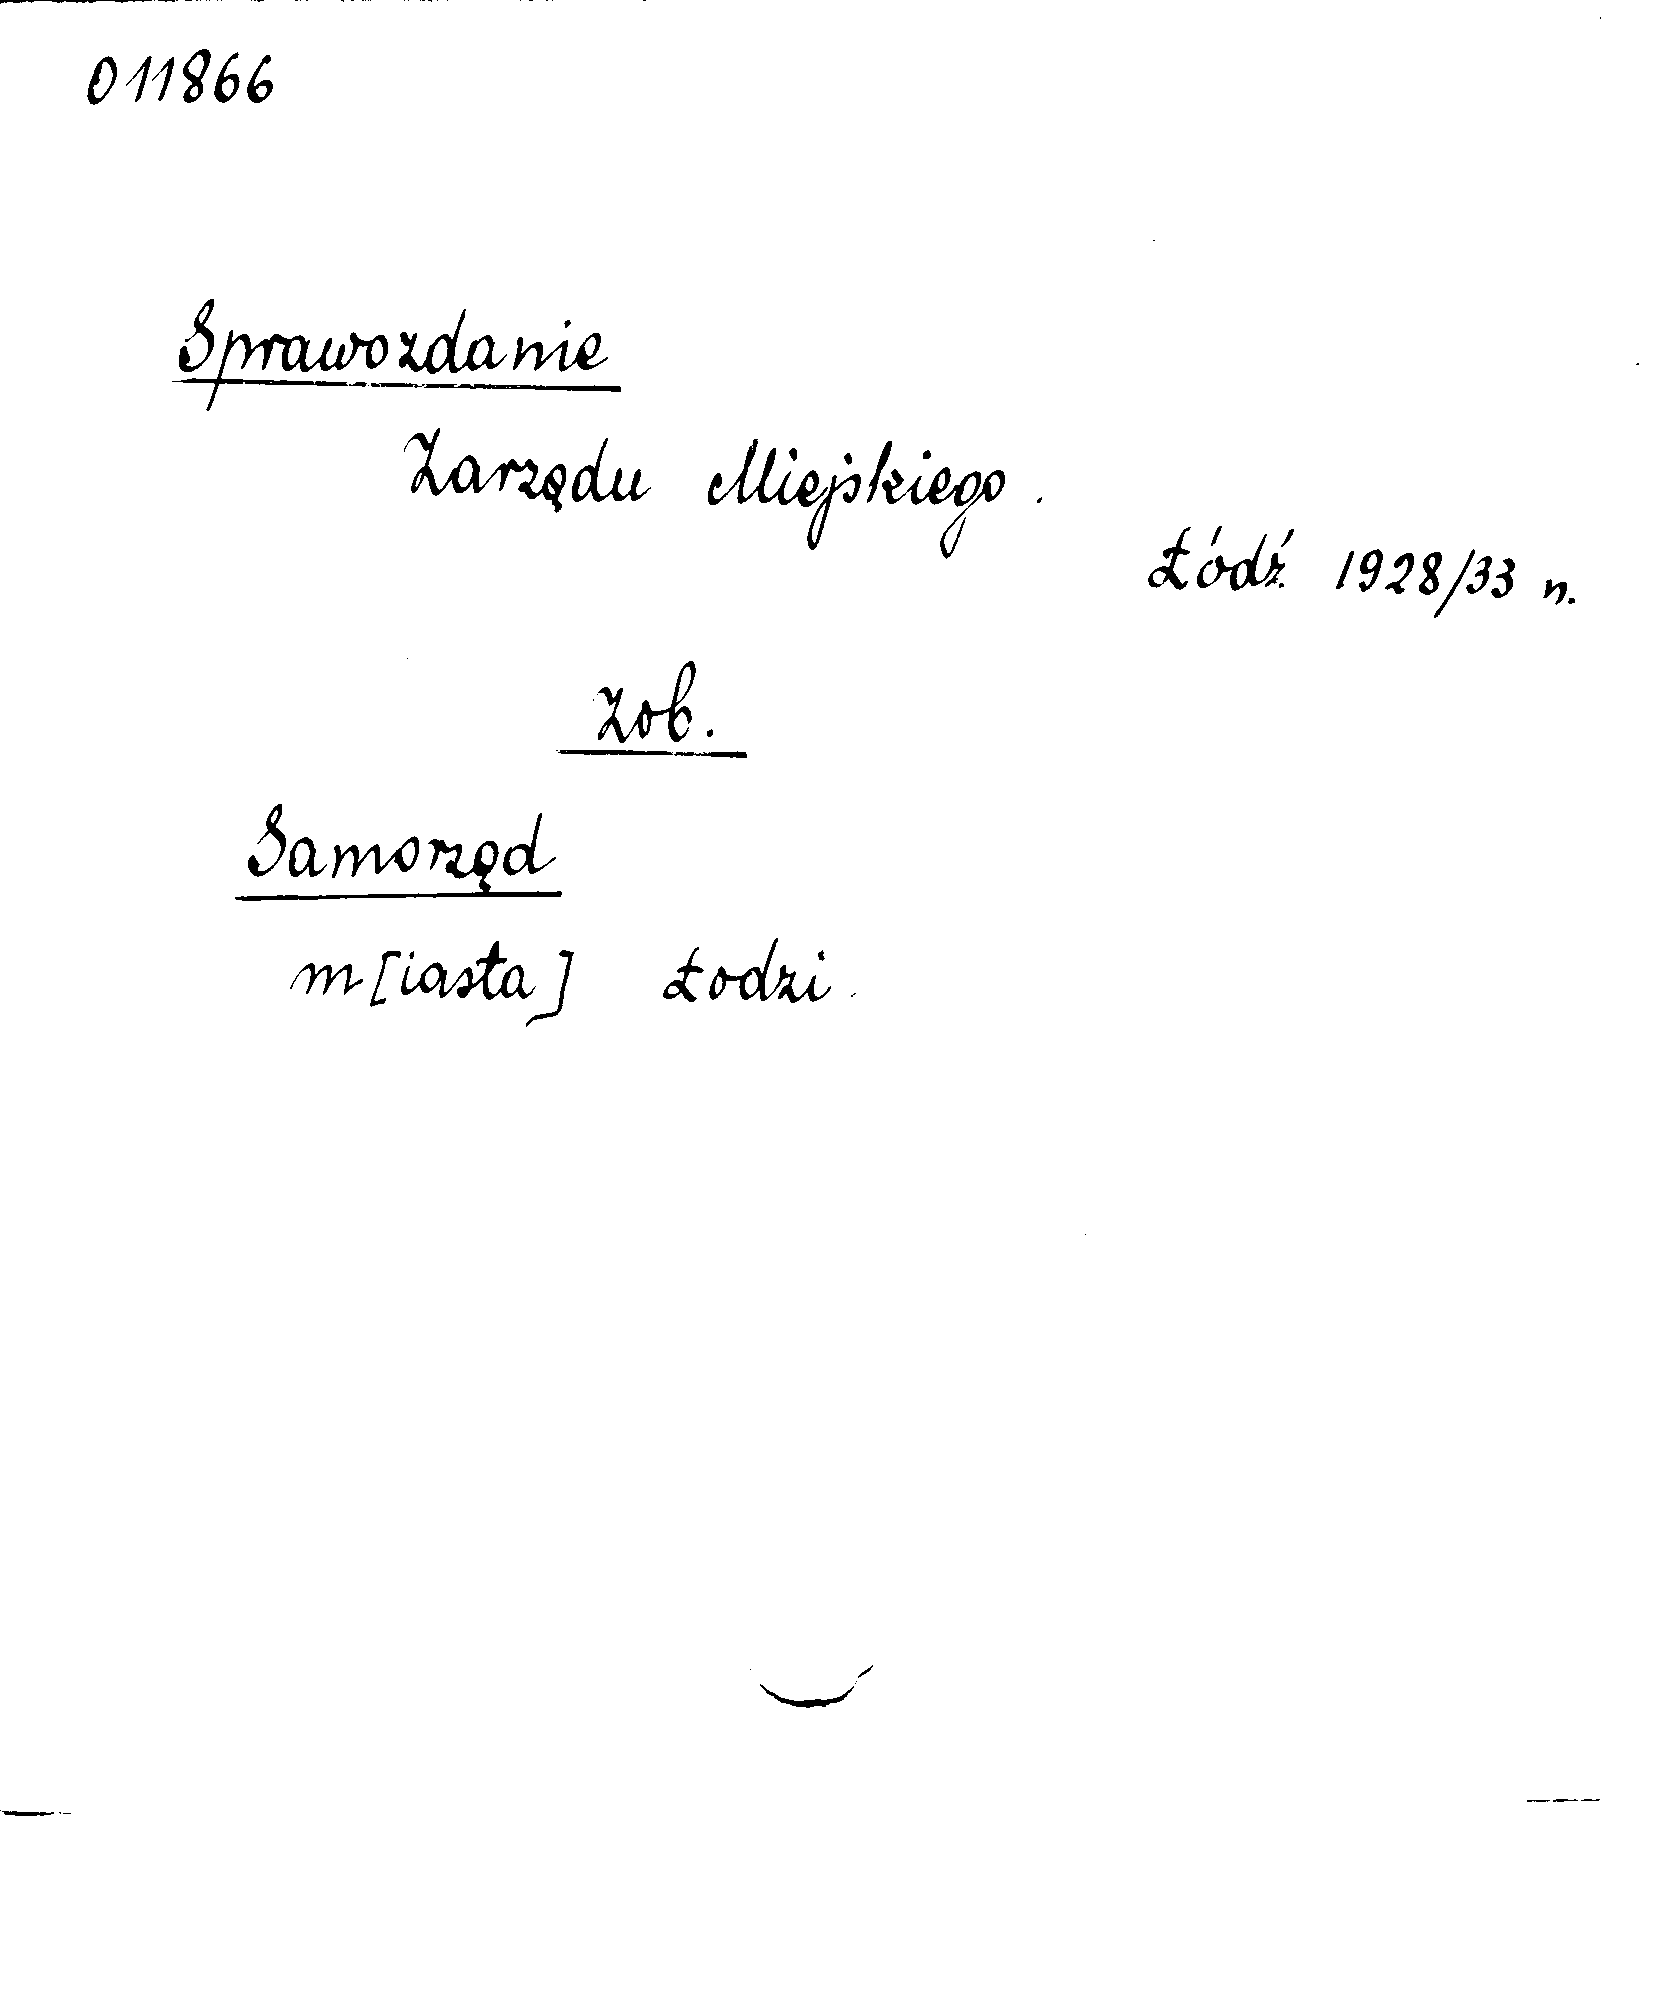 011866
Sprawozdanie
Zarządu Miejskiego.
Łódź 1928/33 n.
Zob.
Samorząd
m[iasta] Łodzi.